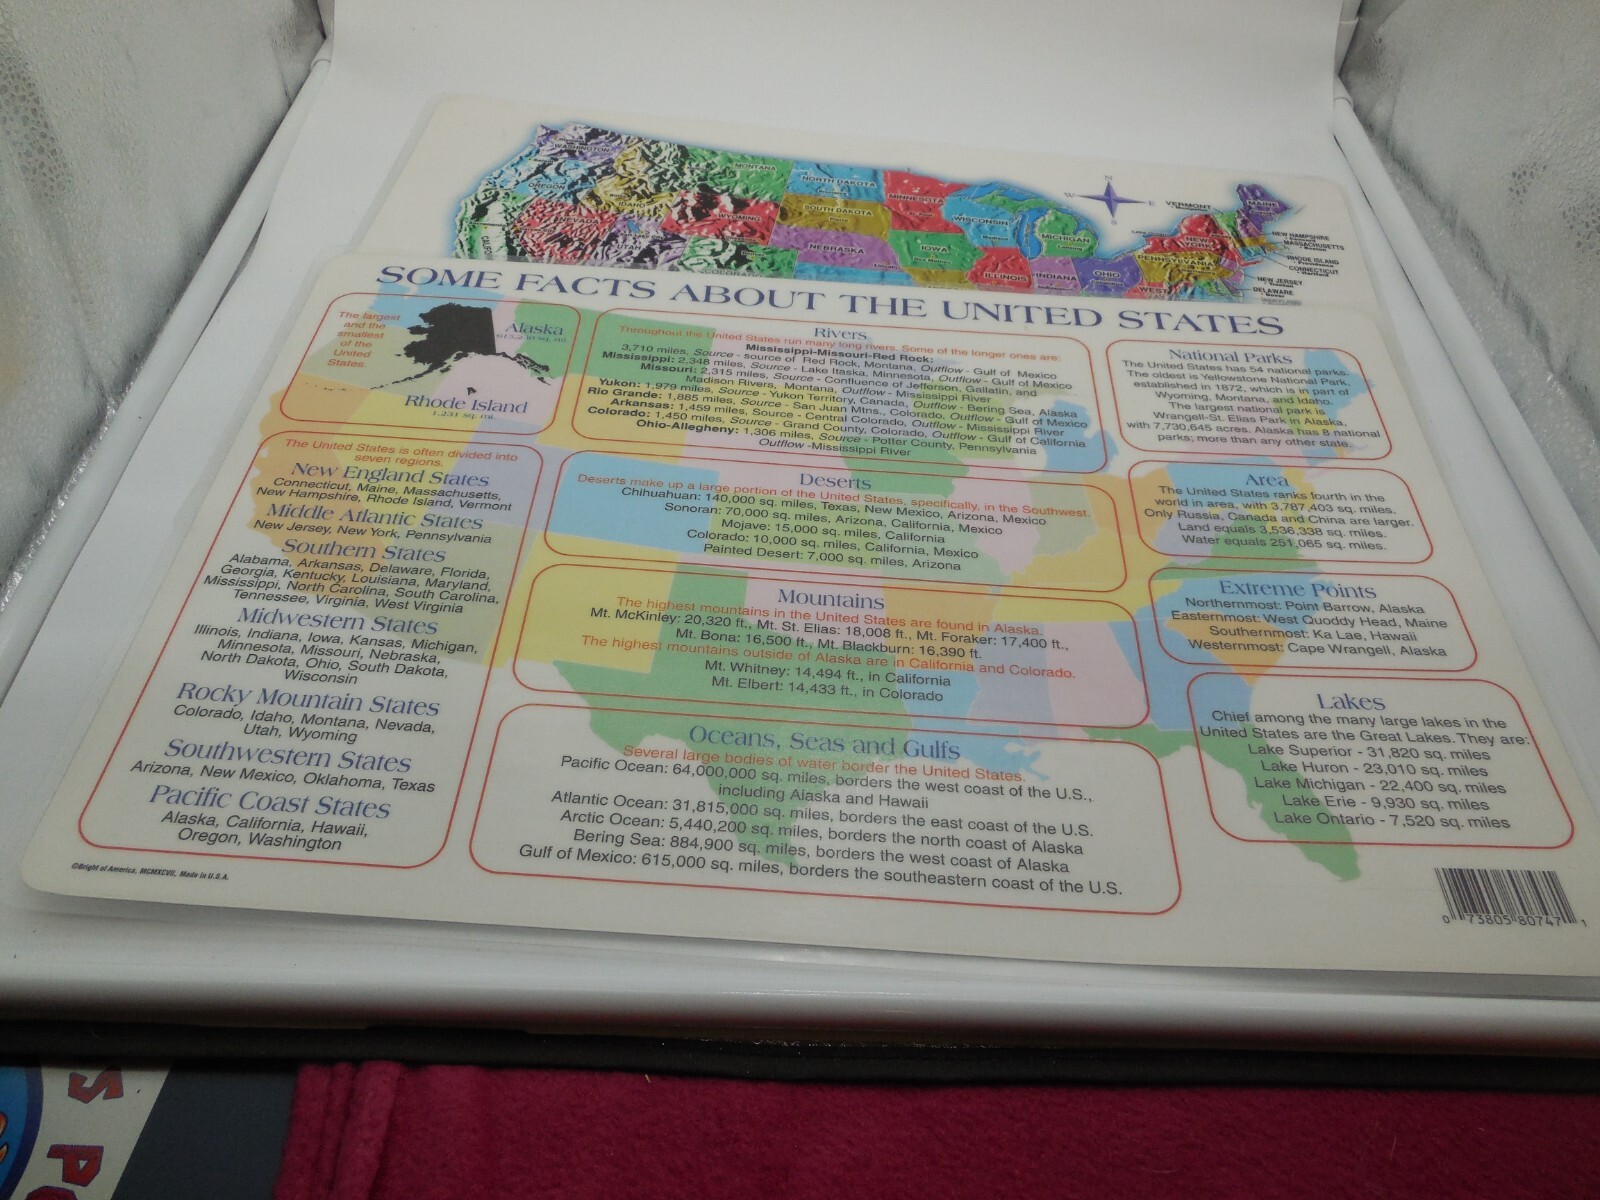 WASHINGTON
OREGON
IDAHO
MONTANA
NEVADA
UTAH
WYOMING
COLORADO
NORTH DAKOTA
SOUTH DAKOTA
Pierre
NEBRASKA
Lincoln
MINNESOTA
IOWA
WISCONSIN
Madison
ILLINOIS
MICHIGAN
Lansing
INDIANA
OHIO
N
W
E
S
VERMONT
MAINE
NEW YORK
PENNSYLVANIA
WEST
NEW HAMPSHIRE
MASSACHUSETTS
RHODE ISLAND
Providence
CONNECTICUT
Hartford
NEW JERSEY
Trenton
DELAWARE
Dover
SOME FACTS ABOUT THE UNITED STATES
The largest
and the
smallest
of the
United
States.
Alaska
Rhode Island
1,231 sq. mi.
The United States is often divided into
seven regions.
New England States
Connecticut, Maine, Massachusetts,
New Hampshire, Rhode Island, Vermont
Middle Atlantic States
New Jersey, New York, Pennsylvania
Southern States
Alabama, Arkansas, Delaware, Florida,
Georgia, Kentucky, Louisiana, Maryland,
Mississippi, North Carolina, South Carolina,
Tennessee, Virginia, West Virginia
Midwestern States
Illinois, Indiana, Iowa, Kansas, Michigan,
Minnesota, Missouri, Nebraska,
North Dakota, Ohio, South Dakota,
Wisconsin
Rocky Mountain States
Colorado, Idaho, Montana, Nevada,
Utah, Wyoming
Southwestern States
Arizona, New Mexico, Oklahoma, Texas
Pacific Coast States
Alaska, California, Hawaii,
Oregon, Washington
Rivers
Throughout the United States run many long rivers. Some of the longer ones are:
Mississippi-Missouri-Red Rock:
3,710 miles, Source - source of Red Rock, Montana, Outflow - Gulf of Mexico
Mississippi: 2,348 miles, Source - Lake Itaska, Minnesota, Outflow - Gulf of Mexico
Missouri: 2,315 miles, Source - Confluence of Jefferson, Gallatin, and
Madison Rivers, Montana, Outflow - Mississippi River
Yukon: 1,979 miles, Source - Yukon Territory, Canada, Outflow - Bering Sea, Alaska
Rio Grande: 1,885 miles, Source - San Juan Mtns., Colorado, Outflow - Gulf of Mexico
Arkansas: 1,459 miles, Source - Central Colorado, Outflow - Mississippi River
Colorado: 1,450 miles, Source - Grand County, Colorado, Outflow - Gulf of California
Ohio-Allegheny: 1,306 miles, Source - Potter County, Pennsylvania
Outflow -Mississippi River
Deserts
Deserts make up a large portion of the United States, specifically, in the Southwest.
Chihuahuan: 140,000 sq. miles, Texas, New Mexico, Arizona, Mexico
Sonoran: 70,000 sq. miles, Arizona, California, Mexico
Mojave: 15,000 sq. miles, California
Colorado: 10,000 sq. miles, California, Mexico
Painted Desert: 7,000 sq. miles, Arizona
Mountains
The highest mountains in the United States are found in Alaska.
Mt. McKinley: 20,320 ft., Mt. St. Elias: 18,008 ft., Mt. Foraker: 17,400 ft.,
Mt. Bona: 16,500 ft., Mt. Blackburn: 16,390 ft.
The highest mountains outside of Alaska are in California and Colorado.
Mt. Whitney: 14,494 ft., in California
Mt. Elbert: 14,433 ft., in Colorado
Oceans, Seas and Gulfs
Several large bodies of water border the United States.
Pacific Ocean: 64,000,000 sq. miles, borders the west coast of the U.S.,
including Alaska and Hawaii
Atlantic Ocean: 31,815,000 sq. miles, borders the east coast of the U.S.
Arctic Ocean: 5,440,200 sq. miles, borders the north coast of Alaska
Bering Sea: 884,900 sq. miles, borders the west coast of Alaska
Gulf of Mexico: 615,000 sq. miles, borders the southeastern coast of the U.S.
National Parks
The United States has 54 national parks.
The oldest is Yellowstone National Park,
established in 1872, which is in part of
Wyoming, Montana, and Idaho.
The largest national park is
Wrangell-St. Elias Park in Alaska,
with 7,730,645 acres. Alaska has 8 national
parks; more than any other state.
Area
The United States ranks fourth in the
world in area, with 3,787,403 sq. miles.
Only Russia, Canada and China are larger.
Land equals 3,536,338 sq. miles.
Water equals 251,065 sq. miles.
Extreme Points
Northernmost: Point Barrow, Alaska
Easternmost: West Quoddy Head, Maine
Southernmost: Ka Lae, Hawaii
Westernmost: Cape Wrangell, Alaska
Lakes
Chief among the many large lakes in the
United States are the Great Lakes. They are:
Lake Superior - 31,820 sq. miles
Lake Huron - 23,010 sq. miles
Lake Michigan - 22,400 sq. miles
Lake Erie - 9,930 sq. miles
Lake Ontario - 7,520 sq. miles
©Bright of America, MCMXCVII, Made in U.S.A.
0 73805 80747 1